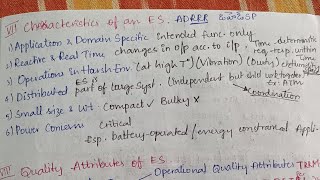 VII Characteristics of an ES. ADRRR
1) Application & Domain Specific intended func. only
2) Reactive & Real Time changes in o/p acc. to i/p. Time deterministic req. resp. within Time
3) Operations in Harsh Env. (at high T°) (Vibration) (Dusty)
4) Distributed ES is part of large syst. (independent but shld work together Er. ATM
coordination
5) Small size & wt. Compact ✓ Bulky X
6) Power Concerns Critical
esp. battery-operated / energy constrained Appli
VIII Quality Attributes of ES.
Operational Quality Attributes